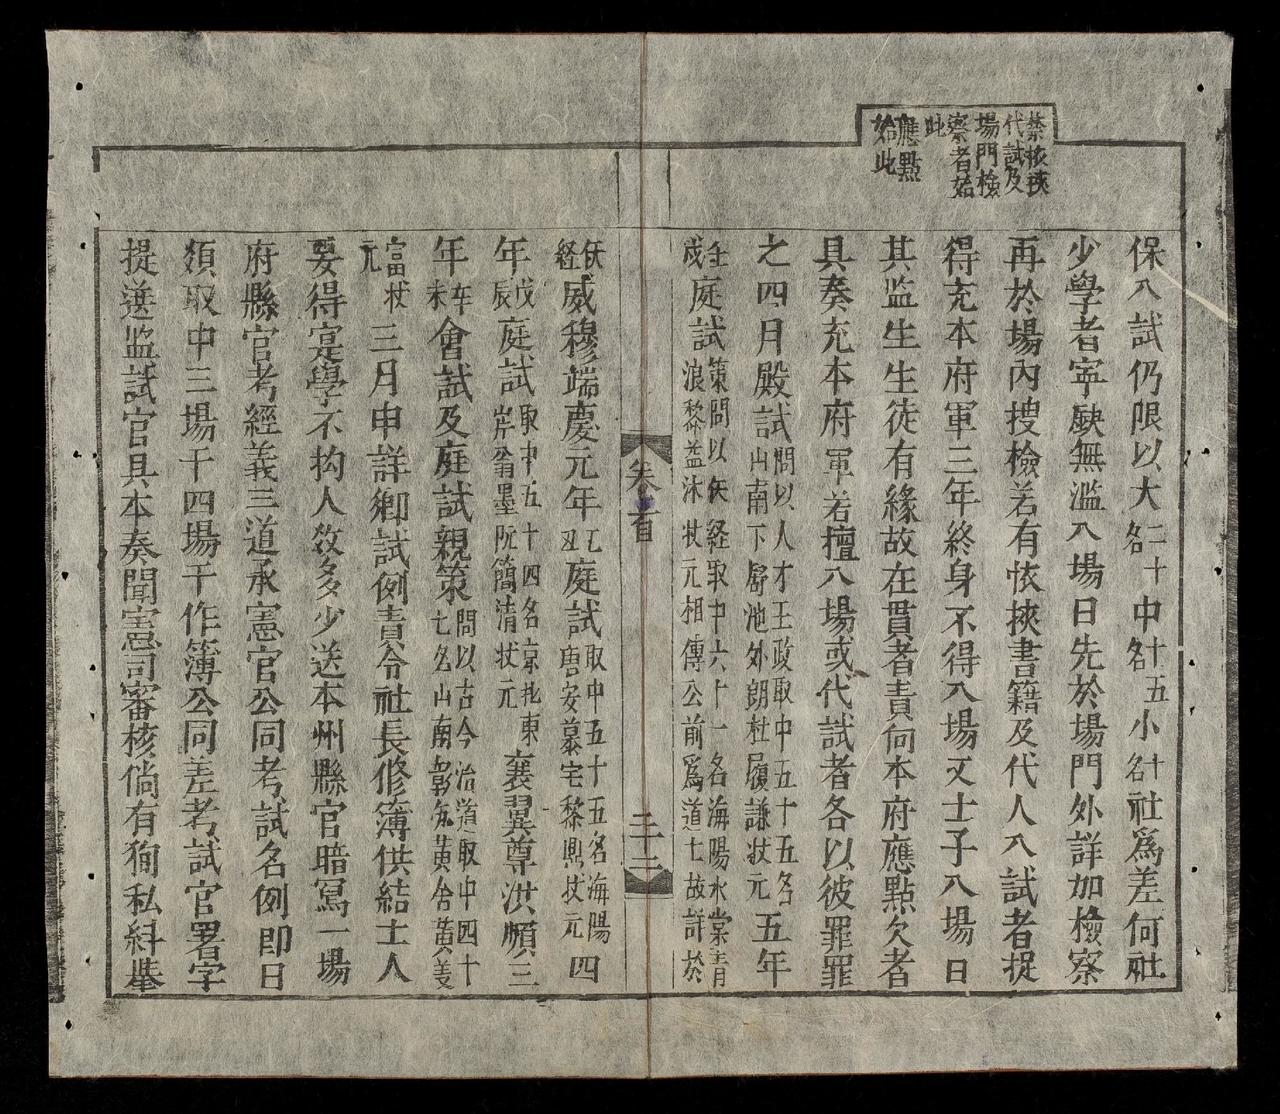 禁挾挾
代試及
場門檢
察者始
此
應點
始此
保入試仍限以大二十名中十五名小十名社爲差何社
少學者寜缺無濫入場日先於場門外詳加檢察
再於場內搜檢若有怀挾書籍及代人入試者捉
得充本府軍三年終身不得入場又士子入場日
其监生生徒有緣故在貫者責向本府應點欠者
具奏充本府軍若擅入場或代試者各以彼罪罪
之四月殿試問以人才王政取中五十五名山南下舒池外朗杜履謙状元五年
壬戌庭試策問以矢経取中六十一名海陽水棠青浪黎益沐状元相傳公前爲道士故詳於
卷首
三十二
矢経威穆端慶元年乙丑庭試取中五十五名海陽唐安慕宅黎鼎状元四
年戊辰庭試取中五十四名京北東岸翁墨阮簡清状元襄翼尊洪順三
年辛未會試及庭試親策問以古今治道取中四十七名山南彰德黃舍黃義
富状元三月申詳鄉試例責令社長修簿供結士人
要得寔學不拘人数多少送本州縣官暗寫一塲
府縣官考經義三道承憲官公同考試名例即日
須取中三場干四場干作簿公同差考試官署字
提遞监試官具本奏聞憲司審核倘有狥私糾擧